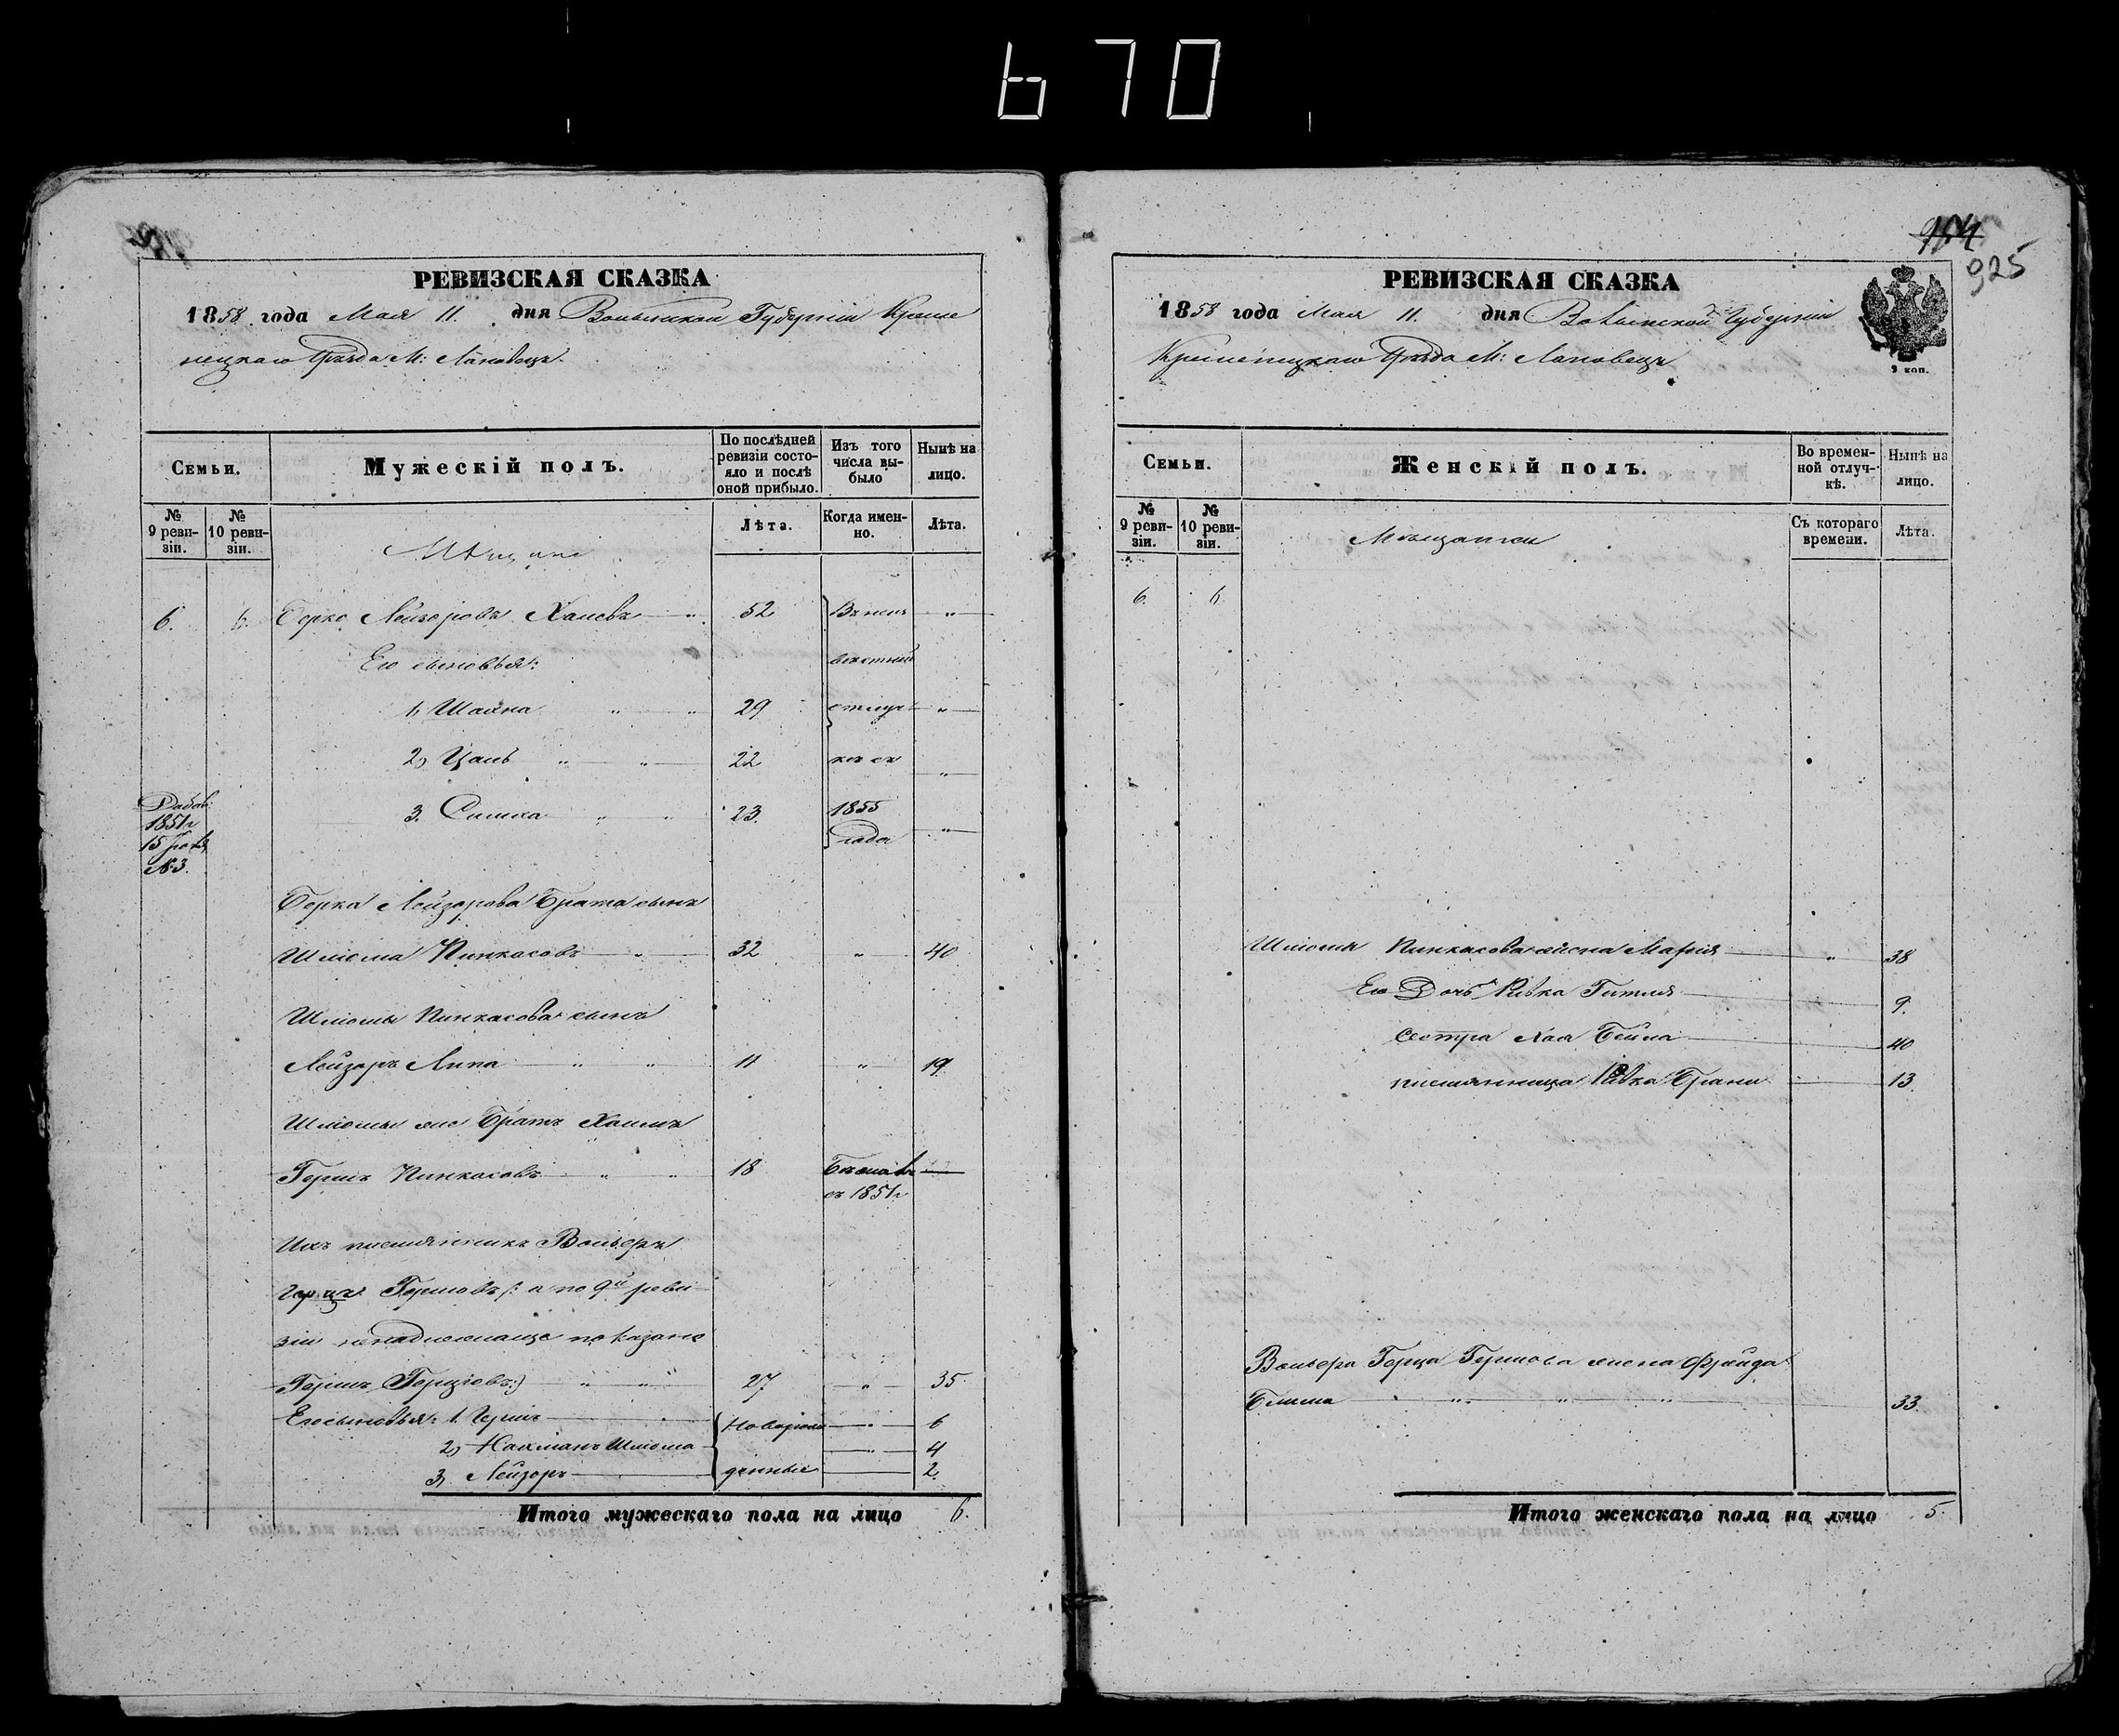 670
РЕВИЗСКАЯ СКАЗКА
1858 года Мая 11. дня Волынской Губерніи Креме
нецкаго Уѣзда М: Лановецъ.
Семьи.
Мужескій полъ.
По послѣдней ревизіи состояло и послѣ оной прибыло.
Изъ того числа выбыло
Нынѣ на лицо.
№ 9 ревизіи.
№ 10 ревизіи.
Лѣта.
Когда именно.
Лѣта.
Мѣщане
6. 6. Берко Лейзоровъ Хаисвъ " 52 Въ неиз "
Его сыновья: вѣстной
1, Шаяна " " 29 отлуч "
2, Цаль " " 22 кѣ съ "
3. Симха " " 23. 1855 "
года
Добав:
1851 г
15
№3.
Берка Лейзорова Брата сынъ
Шлиома Пинкасовъ " 32 " 40
Шлиомы Пинкасова сынъ
Лейзоръ Липа " " 11 " 19
Шлиомы же Братъ Хаимъ
Гершъ Пинкасовъ " " 18 Бѣжалъ
съ 1851 г
Ихъ племянникъ Вольфъ
Герцъ Гершовъ (: а по 9й реви
зіи ненадлежаще показано
Гершъ Герцовъ:) " " 27 " 35.
Его сыновья: 1. Гершъ " Новорож " 6
2, Нахманъ Шлиома " 4
3, Лейзоръ денные 2.
Итого мужескаго пола на лицо 6.
954
925
РЕВИЗСКАЯ СКАЗКА
1858 года Мая 11. дня Волынской Губерніи
Кременецкаго Уѣзда М: Лановецъ
2 коп.
Семьи.
Женскій полъ.
Во временной отлучкѣ.
Нынѣ на лицо.
№ 9 ревизіи.
№ 10 ревизіи.
Съ котораго времени.
Лѣта.
Мѣщанки
6. 6.
Шлиомы Пинкасова жена Марія " 38
Его Дочь Ривка Гитля 9.
Сестра Хая Бейла 40
племянница Ривка Брана 13
Вольфа Герца Гершова жена Фрейда
Блима " " " " 33.
Итого женскаго пола на лицо 5.